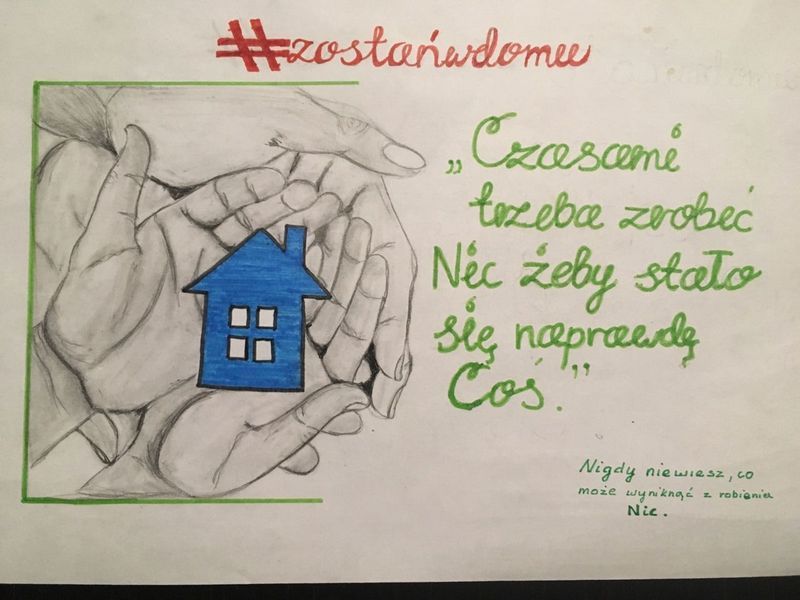 #zostańwdomu
„Czasami
trzeba zrobić
Nic żeby stało
się naprawdę
Coś.”
Nigdy niewiesz, co
może wyniknąć z robienia
Nic.